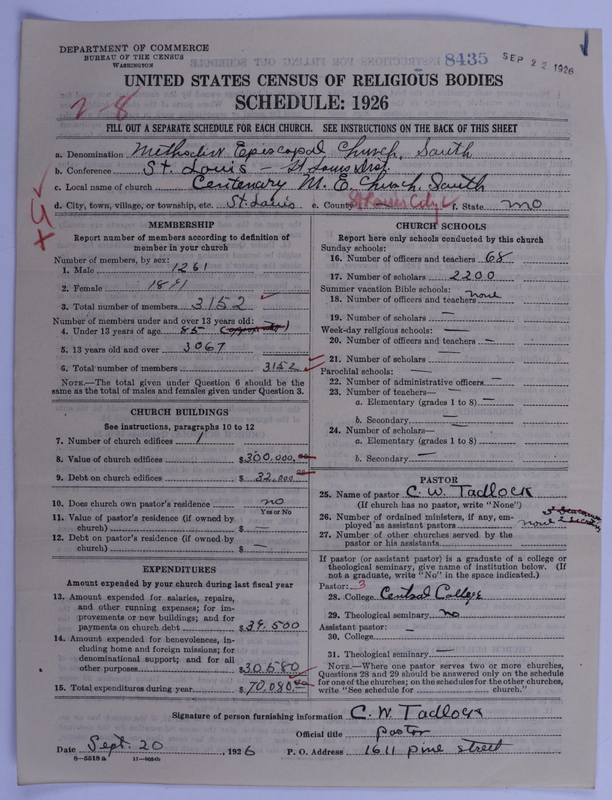 DEPARTMENT OF COMMERCE
BUREAU OF THE CENSUS
WASHINGTON
8435
SEP 22 1926
UNITED STATES CENSUS OF RELIGIOUS BODIES
SCHEDULE: 1926
2-8
FILL OUT A SEPARATE SCHEDULE FOR EACH CHURCH. SEE INSTRUCTIONS ON THE BACK OF THIS SHEET
a. Denomination Methodist Episcopal Church, South
b. Conference St. Louis - St Louis Dist.
c. Local name of church Centenary M. E. Church South
d. City, town, village, or township, etc. St. Louis e. County St Louis City f. State Mo
MEMBERSHIP
Report number of members according to definition of member in your church
Number of members, by sex:
1. Male 1261
2. Female 1891
3. Total number of members 3152
Number of members under and over 13 years old:
4. Under 13 years of age 85
5. 13 years old and over 3067
6. Total number of members 3152
NOTE.—The total given under Question 6 should be the same as the total of males and females given under Question 3.
CHURCH BUILDINGS
See instructions, paragraphs 10 to 12
7. Number of church edifices 1
8. Value of church edifices $300,000.00
9. Debt on church edifices $32,000.00
10. Does church own pastor's residence no
Yes or No
11. Value of pastor's residence (if owned by church) $ —
12. Debt on pastor's residence (if owned by church) $ —
EXPENDITURES
Amount expended by your church during last fiscal year
13. Amount expended for salaries, repairs, and other running expenses; for improvements or new buildings; and for payments on church debt $39.500
14. Amount expended for benevolences, including home and foreign missions; for denominational support; and for all other purposes $30.580
15. Total expenditures during year $70,080.00
CHURCH SCHOOLS
Report here only schools conducted by this church
Sunday schools:
16. Number of officers and teachers 68
17. Number of scholars 2200
Summer vacation Bible schools:
18. Number of officers and teachers none
19. Number of scholars —
Week-day religious schools: —
20. Number of officers and teachers —
21. Number of scholars —
Parochial schools: —
22. Number of administrative officers —
23. Number of teachers—
a. Elementary (grades 1 to 8) —
b. Secondary —
24. Number of scholars—
a. Elementary (grades 1 to 8) —
b. Secondary —
PASTOR
25. Name of pastor C. W. Tadlock
(If church has no pastor, write "None")
26. Number of ordained ministers, if any, employed as assistant pastors none
27. Number of other churches served by the pastor or his assistants
If pastor (or assistant pastor) is a graduate of a college or theological seminary, give name of institution below. (If not a graduate, write "No" in the space indicated.)
Pastor: 3
28. College Central College
29. Theological seminary no
Assistant pastor: —
30. College
31. Theological seminary —
NOTE.—Where one pastor serves two or more churches, Questions 28 and 29 should be answered only on the schedule for one of the churches; on the schedules for the other churches, write "See schedule for church."
Signature of person furnishing information C. W. Tadlock
Official title pastor
Date Sept. 20, 1926 P. O. Address 1611 pine street
8-5518a